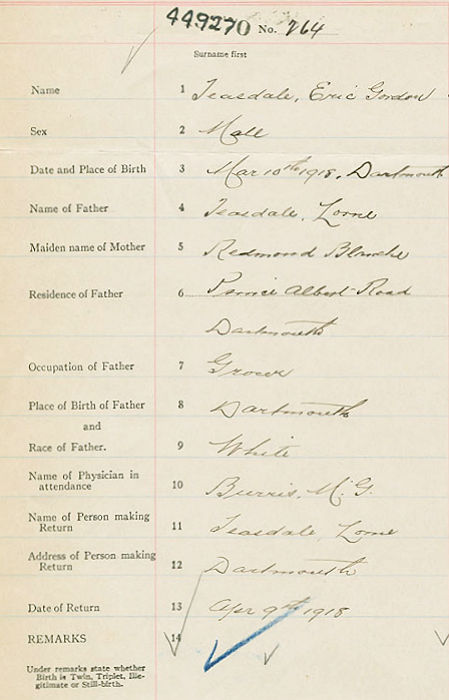 449270 No. 764
Surname first
Name 1 Teasdale, Eric Gordon
Sex 2 Male
Date and Place of Birth 3 Mar 10th 1918, Dartmouth
Name of Father 4 Teasdale, Lorne
Maiden name of Mother 5 Redmond Blanche
Residence of Father 6 Prince Albert Road
Dartmouth
Occupation of Father 7 Grocer
Place of Birth of Father 8 Dartmouth
and
Race of Father. 9 White
Name of Physician in
attendance 10 Burris, M. G.
Name of Person making
Return 11 Teasdale, Lorne
Address of Person making
Return 12 Dartmouth
Date of Return 13 Apr 9th 1918
REMARKS 14
Under remarks state whether
Birth is Twin, Triplet, Ille-
gitimate or Still-birth.